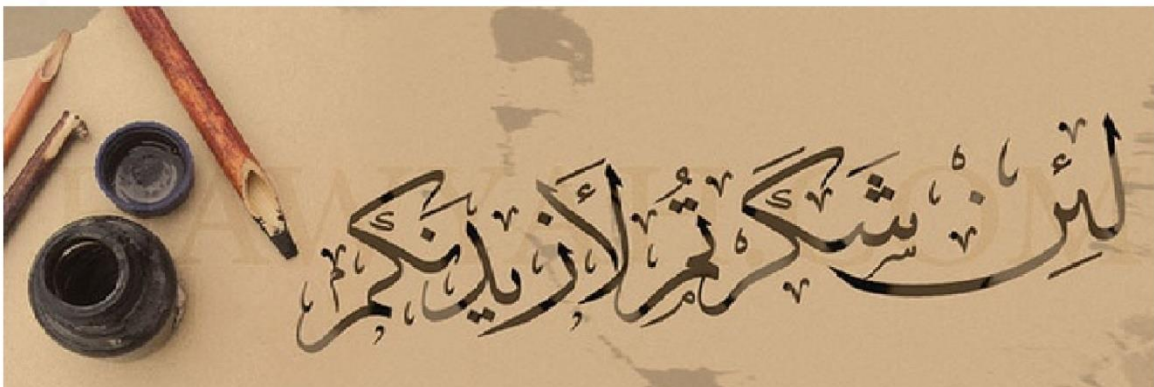 لَئِنْ شَكَرْتُمْ لَأَزِيدَنَّكُمْ